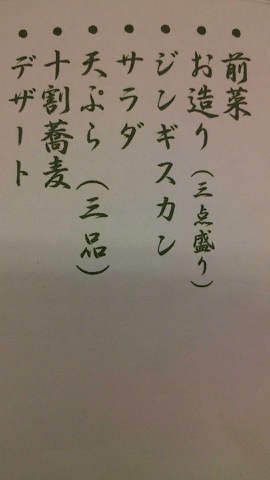 • 前菜
• お造り（三点盛り）
• ジンギスカン
• サラダ
• 天ぷら（三品）
• 十割蕎麦
• デザート